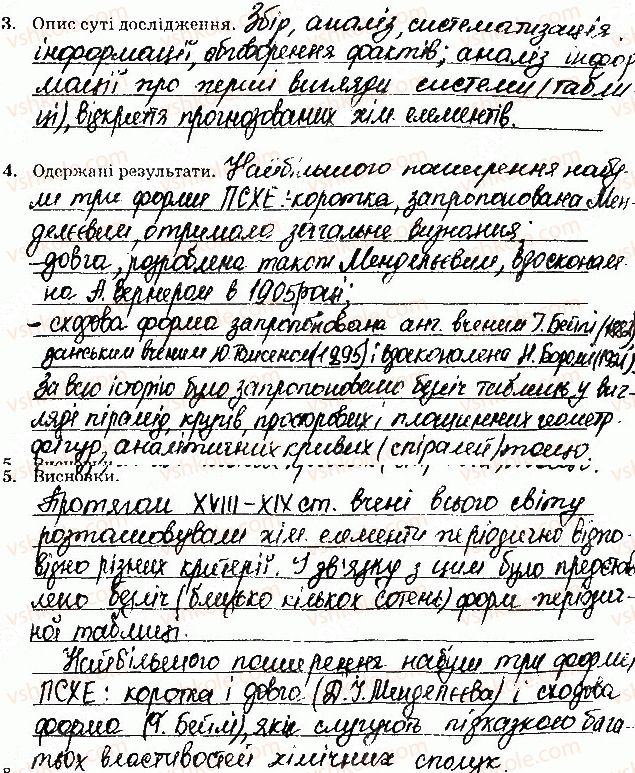 3. Опис суті дослідження. Збір, аналіз, систематизація
інформації, обговорення фактів; аналіз інфор
мації про перші вигляди системи (табли
ці), відкриття прогнозованих хім. елементів.
4. Одержані результати. Найбільшого поширення набу-
ли три форми ПСХЕ: -коротка, запропонована Мен-
делєєвим, отримала загальне визнання;
-довга, розроблена також Менделєєвим, вдоскона
на А. Вернером в 1905році;
- сходова форма запропонована анг. вченим Т. Бейлі (1882)
данським вченим Ю. Томсеном (1895) і вдосконалена Н. Бором (1921).
За всю історію було запропоновано безліч таблиць у виг-
ляді пірамід, кругів, просторових і площинних геометр.
фігур, аналітичних кривих (спіралей) тощо.
5. Висновки.
Протягом XVIII-XIX ст. вчені всього світу
розташовували хім. елементи періодично відпо-
відно різних критерії. І зв'язку з цим було представ
лено безліч (близько кількох сотень) форм періодич-
ної таблиці.
Найбільшого поширення набули три форми
ПСХЕ: коротка і довга (Д.І. Менделєєва) і сходова
форма (Т. Бейлі), які слугують підказкою бага-
тьох властивостей хімічних сполук